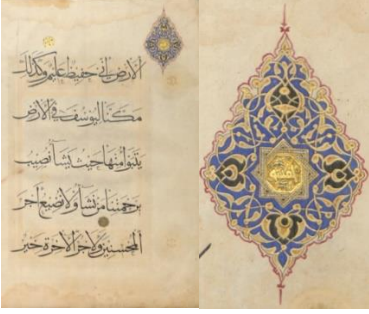 الارض اني حفيظ عليم وكذلك
مكنا ليوسف في الارض
يتبوأ منها حيث يشاء نصيب
برحمتنا من نشاء ولا نضيع اجر
المحسنين ولاجر الاخرة خير